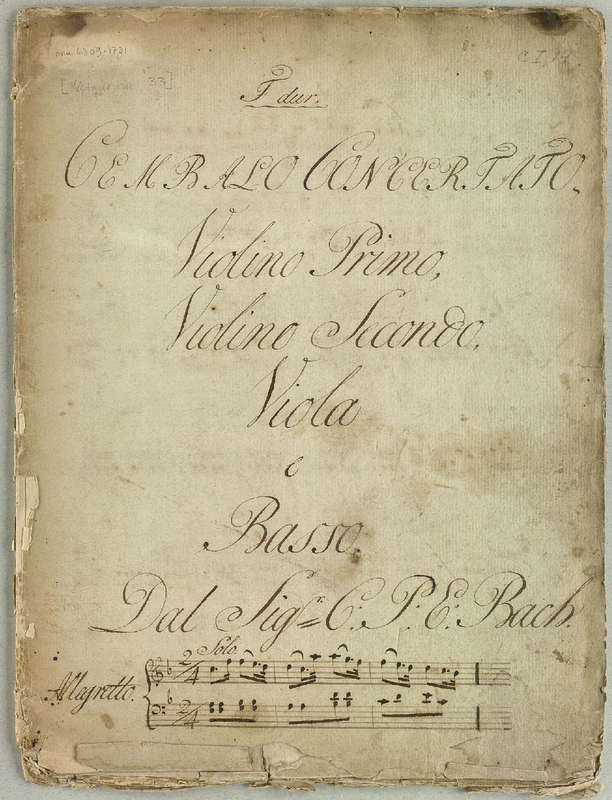 mu. 6309.1731
C I, 17
33]
F dur.
CEMBALO CONCERTATO.
Violino Primo,
Violino Secondo,
Viola
e
Basso.
Dal Sigr. C. P. E. Bach.
Solo.
Allegretto.
2/4
2/4